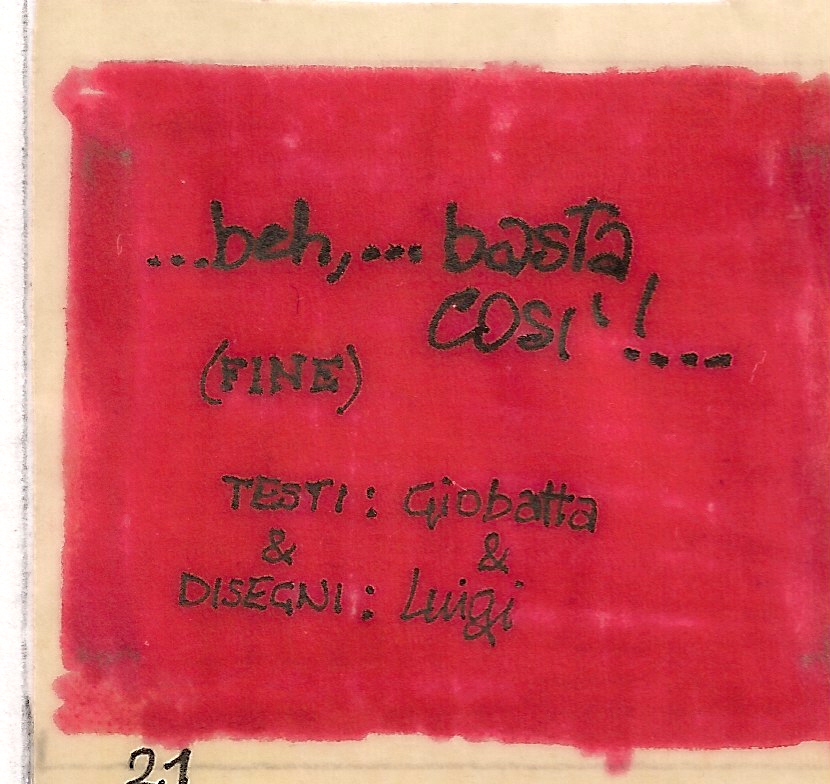 ...beh,... basta
COSI'!...
(FINE)
TESTI: Giobatta
& &
DISEGNI: Luigi
21